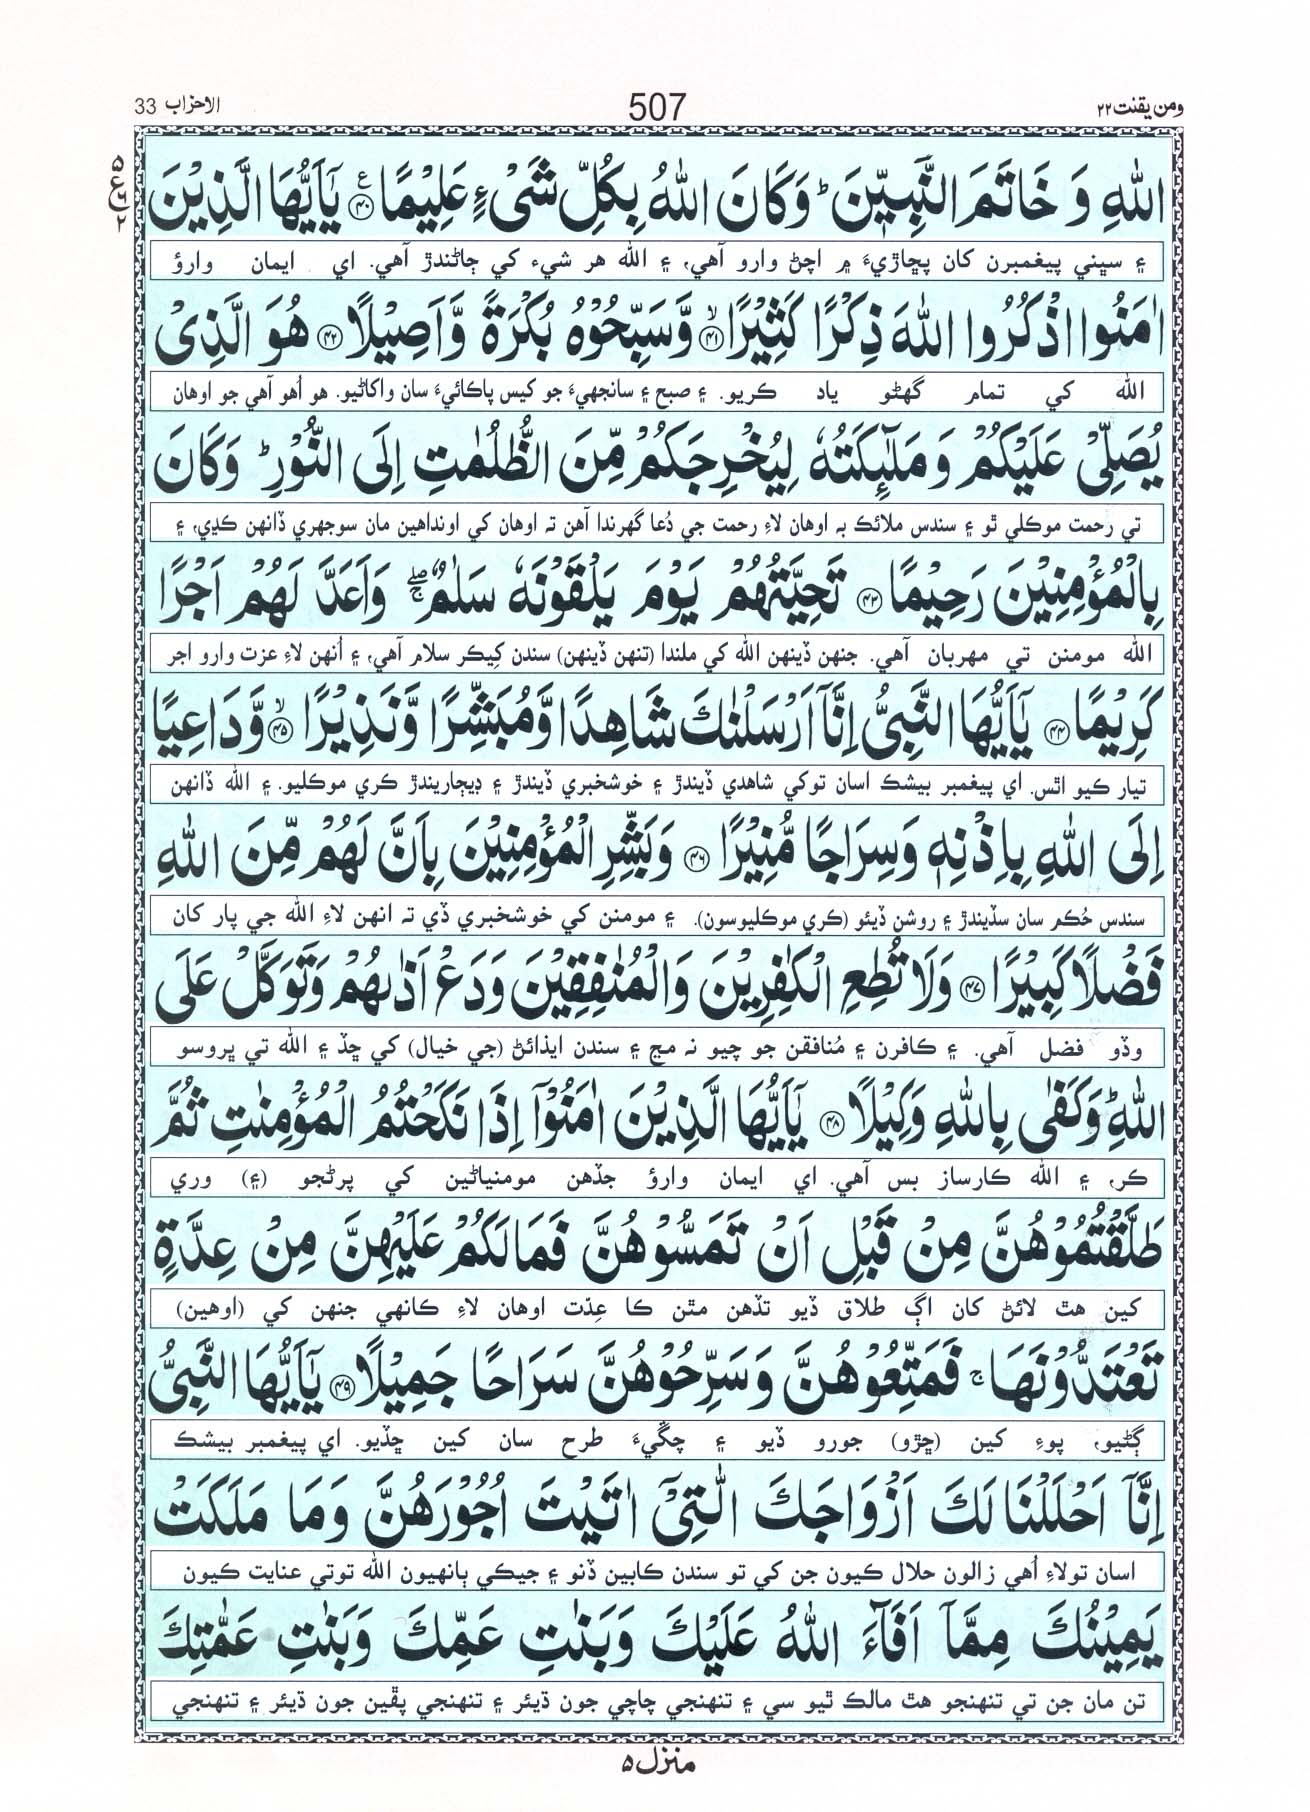 ومن يقنت ۲۲ 507 الاحزاب 33
اللّٰهِ وَ خَاتَمَ النَّبِيّٖنَ ؕ وَكَانَ اللّٰهُ بِكُلِّ شَیْءٍ عَلِيْمًا ﴿۴۰﴾ يٰۤاَيُّهَا الَّذِيْنَ
۽ سڀني پيغمبرن کان پڇاڙيءَ ۾ اچڻ وارو آهي، ۽ الله هر شيء کي ڄاڻندڙ آهي. اي ايمان وارؤ
اٰمَنُوا اذْكُرُوا اللّٰهَ ذِكْرًا كَثِيْرًا ﴿۴۱﴾ۙ وَّسَبِّحُوْهُ بُكْرَةً وَّاَصِيْلًا ﴿۴۲﴾ هُوَ الَّذِیْ
الله کي تمام گهڻو ياد ڪريو. ۽ صبح ۽ سانجهيءَ جو کيس پاڪائيءَ سان واکاڻيو. هو اُهو آهي جو اوهان
يُصَلِّیْ عَلَيْكُمْ وَ مَلٰٓئِكَتُهٗ لِيُخْرِجَكُمْ مِّنَ الظُّلُمٰتِ اِلَی النُّوْرِ ؕ وَكَانَ
تي رحمت موڪلي ٿو ۽ سندس ملائڪ به اوهان لاءِ رحمت جي دُعا گهرندا آهن ته اوهان کي اونداهين مان سوجهري ڏانهن ڪڍي، ۽
بِالْمُؤْمِنِيْنَ رَحِيْمًا ﴿۴۳﴾ تَحِيَّتُهُمْ يَوْمَ يَلْقَوْنَهٗ سَلٰمٌ ۖۚ وَاَعَدَّ لَهُمْ اَجْرًا
الله مومنن تي مهربان آهي. جنهن ڏينهن الله کي ملندا (تنهن ڏينهن) سندن کِيڪر سلام آهي، ۽ اُنهن لاءِ عزت وارو اجر
كَرِيْمًا ﴿۴۴﴾ يٰۤاَيُّهَا النَّبِیُّ اِنَّاۤ اَرْسَلْنٰكَ شَاهِدًا وَّمُبَشِّرًا وَّنَذِيْرًا ﴿۴۵﴾ۙ وَّدَاعِيًا
تيار ڪيو اٿس. اي پيغمبر بيشڪ اسان توکي شاهدي ڏيندڙ ۽ خوشخبري ڏيندڙ ۽ ڊيڄاريندڙ ڪري موڪليو. ۽ الله ڏانهن
اِلَی اللّٰهِ بِاِذْنِهٖ وَسِرَاجًا مُّنِيْرًا ﴿۴۶﴾ وَبَشِّرِ الْمُؤْمِنِيْنَ بِاَنَّ لَهُمْ مِّنَ اللّٰهِ
سندس حُڪم سان سڏيندڙ ۽ روشن ڏيئو (ڪري موڪليوسون). ۽ مومنن کي خوشخبري ڏي ته انهن لاءِ الله جي پار کان
فَضْلًا كَبِيْرًا ﴿۴۷﴾ وَلَا تُطِعِ الْكٰفِرِيْنَ وَالْمُنٰفِقِيْنَ وَدَعْ اَذٰىهُمْ وَتَوَكَّلْ عَلَی
وڏو فضل آهي. ۽ ڪافرن ۽ مُنافقن جو چيو نہ مڃ ۽ سندن ايذائڻ (جي خيال) کي ڇڏ ۽ الله تي ڀروسو
اللّٰهِ ؕ وَكَفٰی بِاللّٰهِ وَكِيْلًا ﴿۴۸﴾ يٰۤاَيُّهَا الَّذِيْنَ اٰمَنُوْۤا اِذَا نَكَحْتُمُ الْمُؤْمِنٰتِ ثُمَّ
ڪر، ۽ الله ڪارساز بس آهي. اي ايمان وارؤ جڏهن مومنياڻين کي پرڻجو (۽) وري
طَلَّقْتُمُوْهُنَّ مِنْ قَبْلِ اَنْ تَمَسُّوْهُنَّ فَمَا لَكُمْ عَلَيْهِنَّ مِنْ عِدَّةٍ
کين هٿ لائڻ کان اڳ طلاق ڏيو تڏهن مٿن ڪا عِدّت اوهان لاءِ ڪانهي جنهن کي (اوهين)
تَعْتَدُّوْنَهَا ۚ فَمَتِّعُوْهُنَّ وَسَرِّحُوْهُنَّ سَرَاحًا جَمِيْلًا ﴿۴۹﴾ يٰۤاَيُّهَا النَّبِیُّ
ڳڻيو، پوءِ کين (ڇڙو) جورو ڏيو ۽ چڱيءَ طرح سان کين ڇڏيو. اي پيغمبر بيشڪ
اِنَّاۤ اَحْلَلْنَا لَكَ اَزْوَاجَكَ الّٰتِیْۤ اٰتَيْتَ اُجُوْرَهُنَّ وَمَا مَلَكَتْ
اسان تولاءِ اُهي زالون حلال ڪيون جن کي تو سندن ڪابين ڏنو ۽ جيڪي ٻانهيون الله توتي عنايت ڪيون
يَمِيْنُكَ مِمَّاۤ اَفَآءَ اللّٰهُ عَلَيْكَ وَبَنٰتِ عَمِّكَ وَبَنٰتِ عَمّٰتِكَ
تن مان جن تي تنهنجو هٿ مالڪ ٿيو سي ۽ تنهنجي چاچي جون ڌيئر ۽ تنهنجي پڦين جون ڌيئر ۽ تنهنجي
منزل ۵